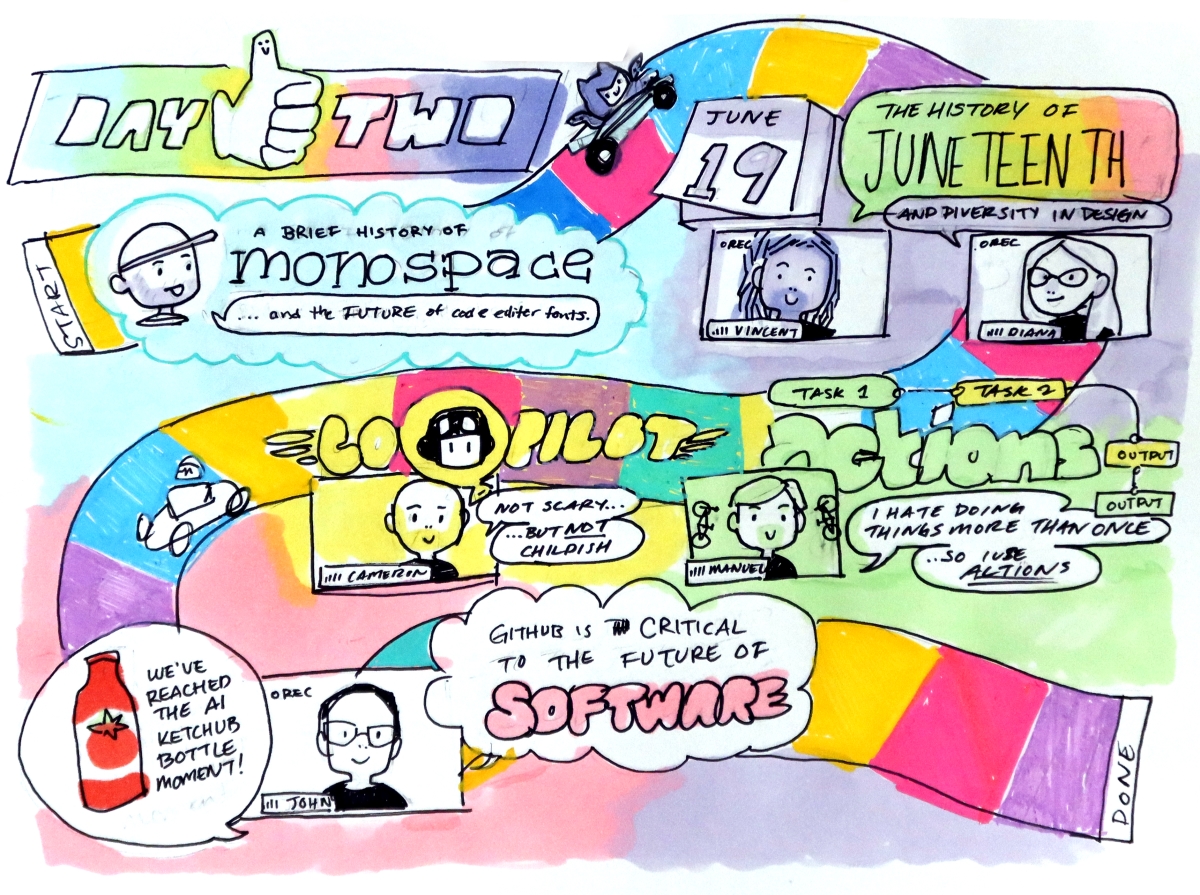 DAY TWO
START
A BRIEF HISTORY OF
monospace
... and the FUTURE of code editor fonts.
JUNE
19
THE HISTORY OF
JUNETEENTH
AND DIVERSITY IN DESIGN
REC
VINCENT
REC
DIANA
COPILOT
CAMERON
NOT SCARY...
...BUT NOT
CHILDISH
TASK 1
TASK 2
OUTPUT
OUTPUT
actions
MANUEL
I HATE DOING
THINGS MORE THAN ONCE
...SO I USE
ACTIONS
WE'VE
REACHED
THE AI
KETCHUB
BOTTLE
MOMENT!
REC
JOHN
GITHUB IS CRITICAL
TO THE FUTURE OF
SOFTWARE
DONE